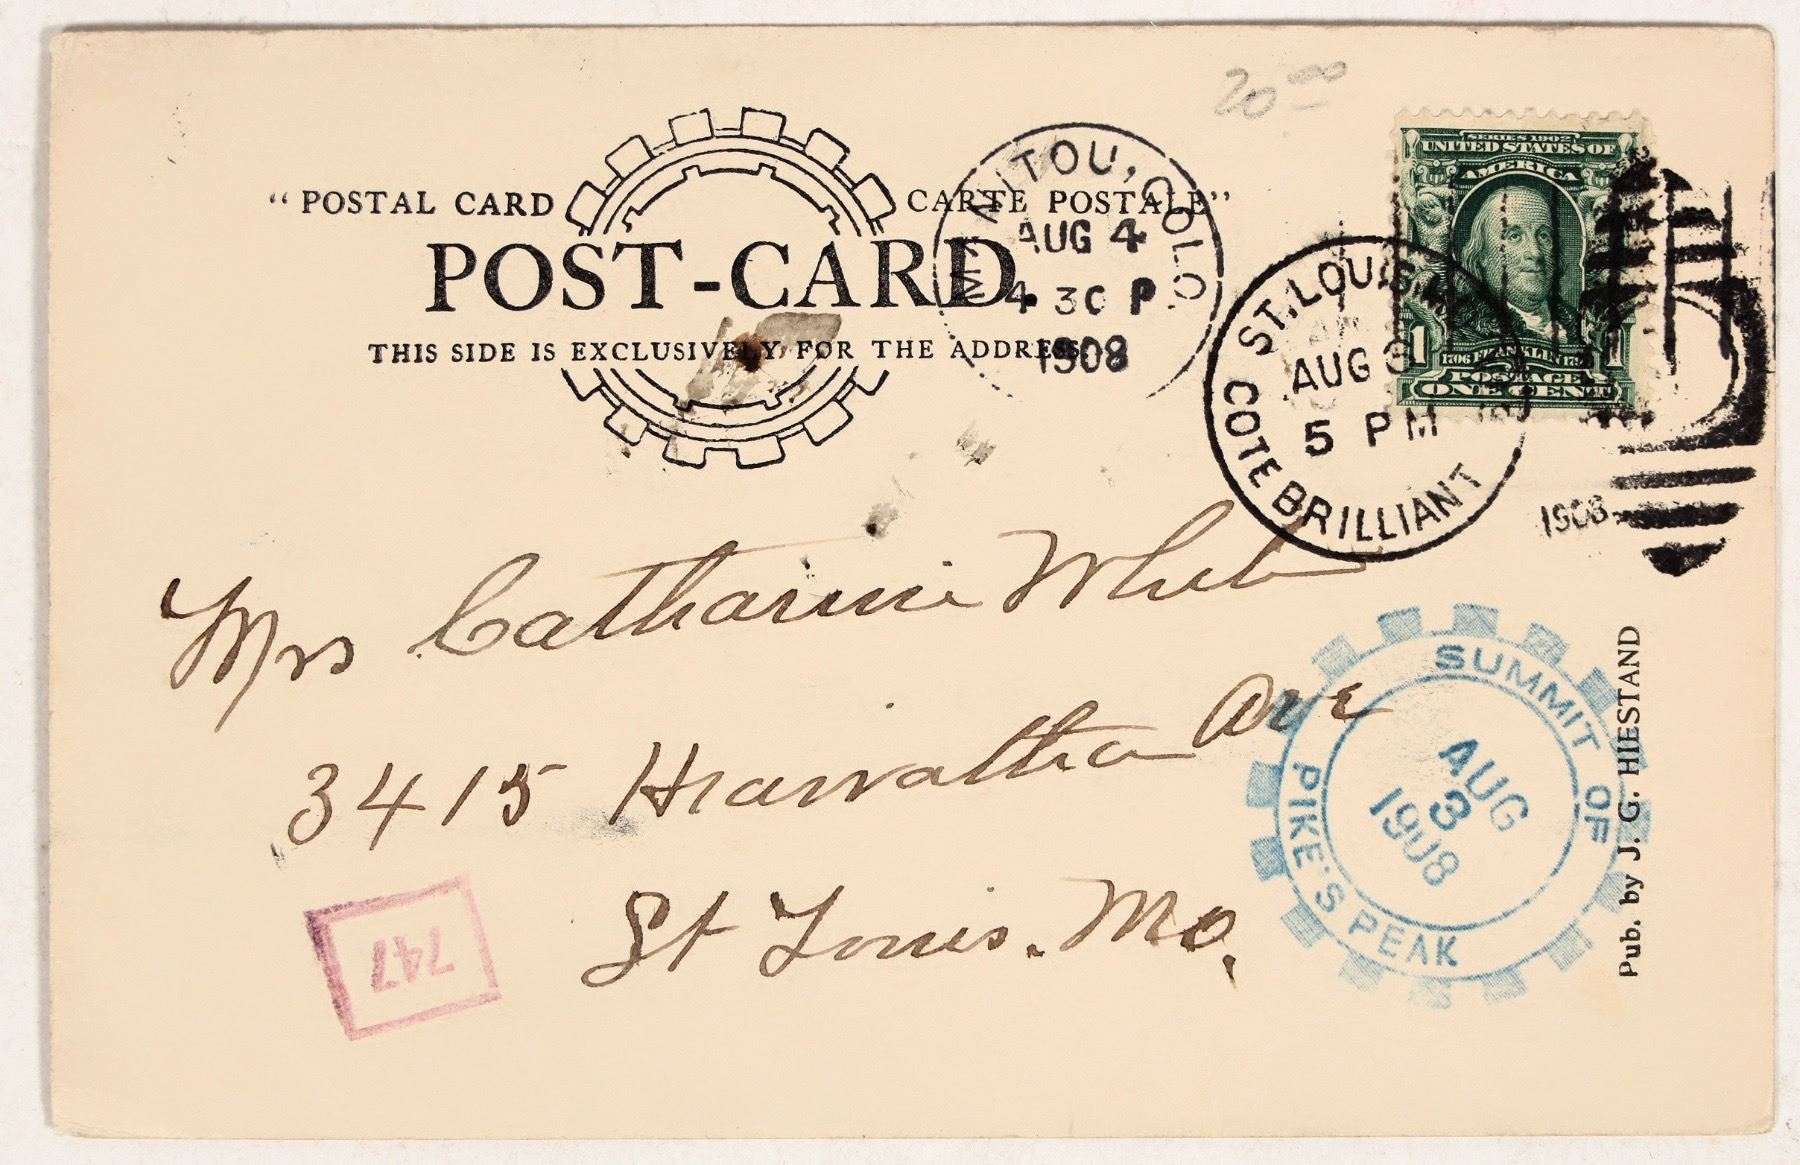 20 00
"POSTAL CARD CARTE POSTALE"
POST-CARD.
THIS SIDE IS EXCLUSIVELY FOR THE ADDRESS
MANITOU, COLO.
AUG 4
4 30 P
1908
SERIES 1902
UNITED STATES OF
AMERICA
1 1706 FRANKLIN 1790 1
POSTAGE
ONE CENT
ST. LOUIS, MO.
AUG
5 PM
COTE BRILLIANT
1908
Mrs Catharine
3415 Hiawatha Ave
St Louis. Mo.
SUMMIT OF
PIKE'S PEAK
AUG
3
1908
Pub. by J. G. HIESTAND
747